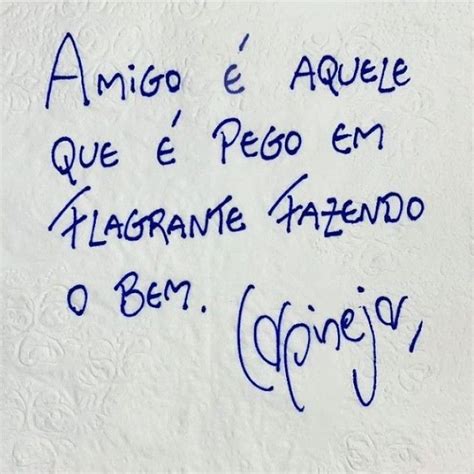 AMIGO É AQUELE
QUE É PEGO EM
FLAGRANTE FAZENDO
O BEM. Carpinejar